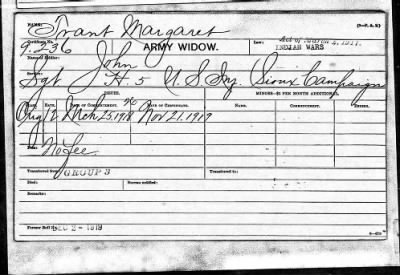 NAME:
Trant Margaret
(3-F. A. 2.)
Certificate No.
9.236
ARMY WIDOW.
Law: Act of March 4, 1917.
INDIAN WARS
Name of Soldier:
John
Service:
Sgt H. 5 U. S. Inf. Sioux Campaign
ISSUES.
MINORS—$2 PER MONTH ADDITIONAL.
CLASS. RATE. DATE OF COMMENCEMENT. DATE OF CERTIFICATE. NAME. COMMENCEMENT. ENDING.
Orig 12 Mch 25, 1918 Nov 21, 1919
No Fee
Transferred from
GROUP 3
Transferred to
Died:
Bureau notified:
Remarks:
Former Roll No.
DEC 2 - 1919